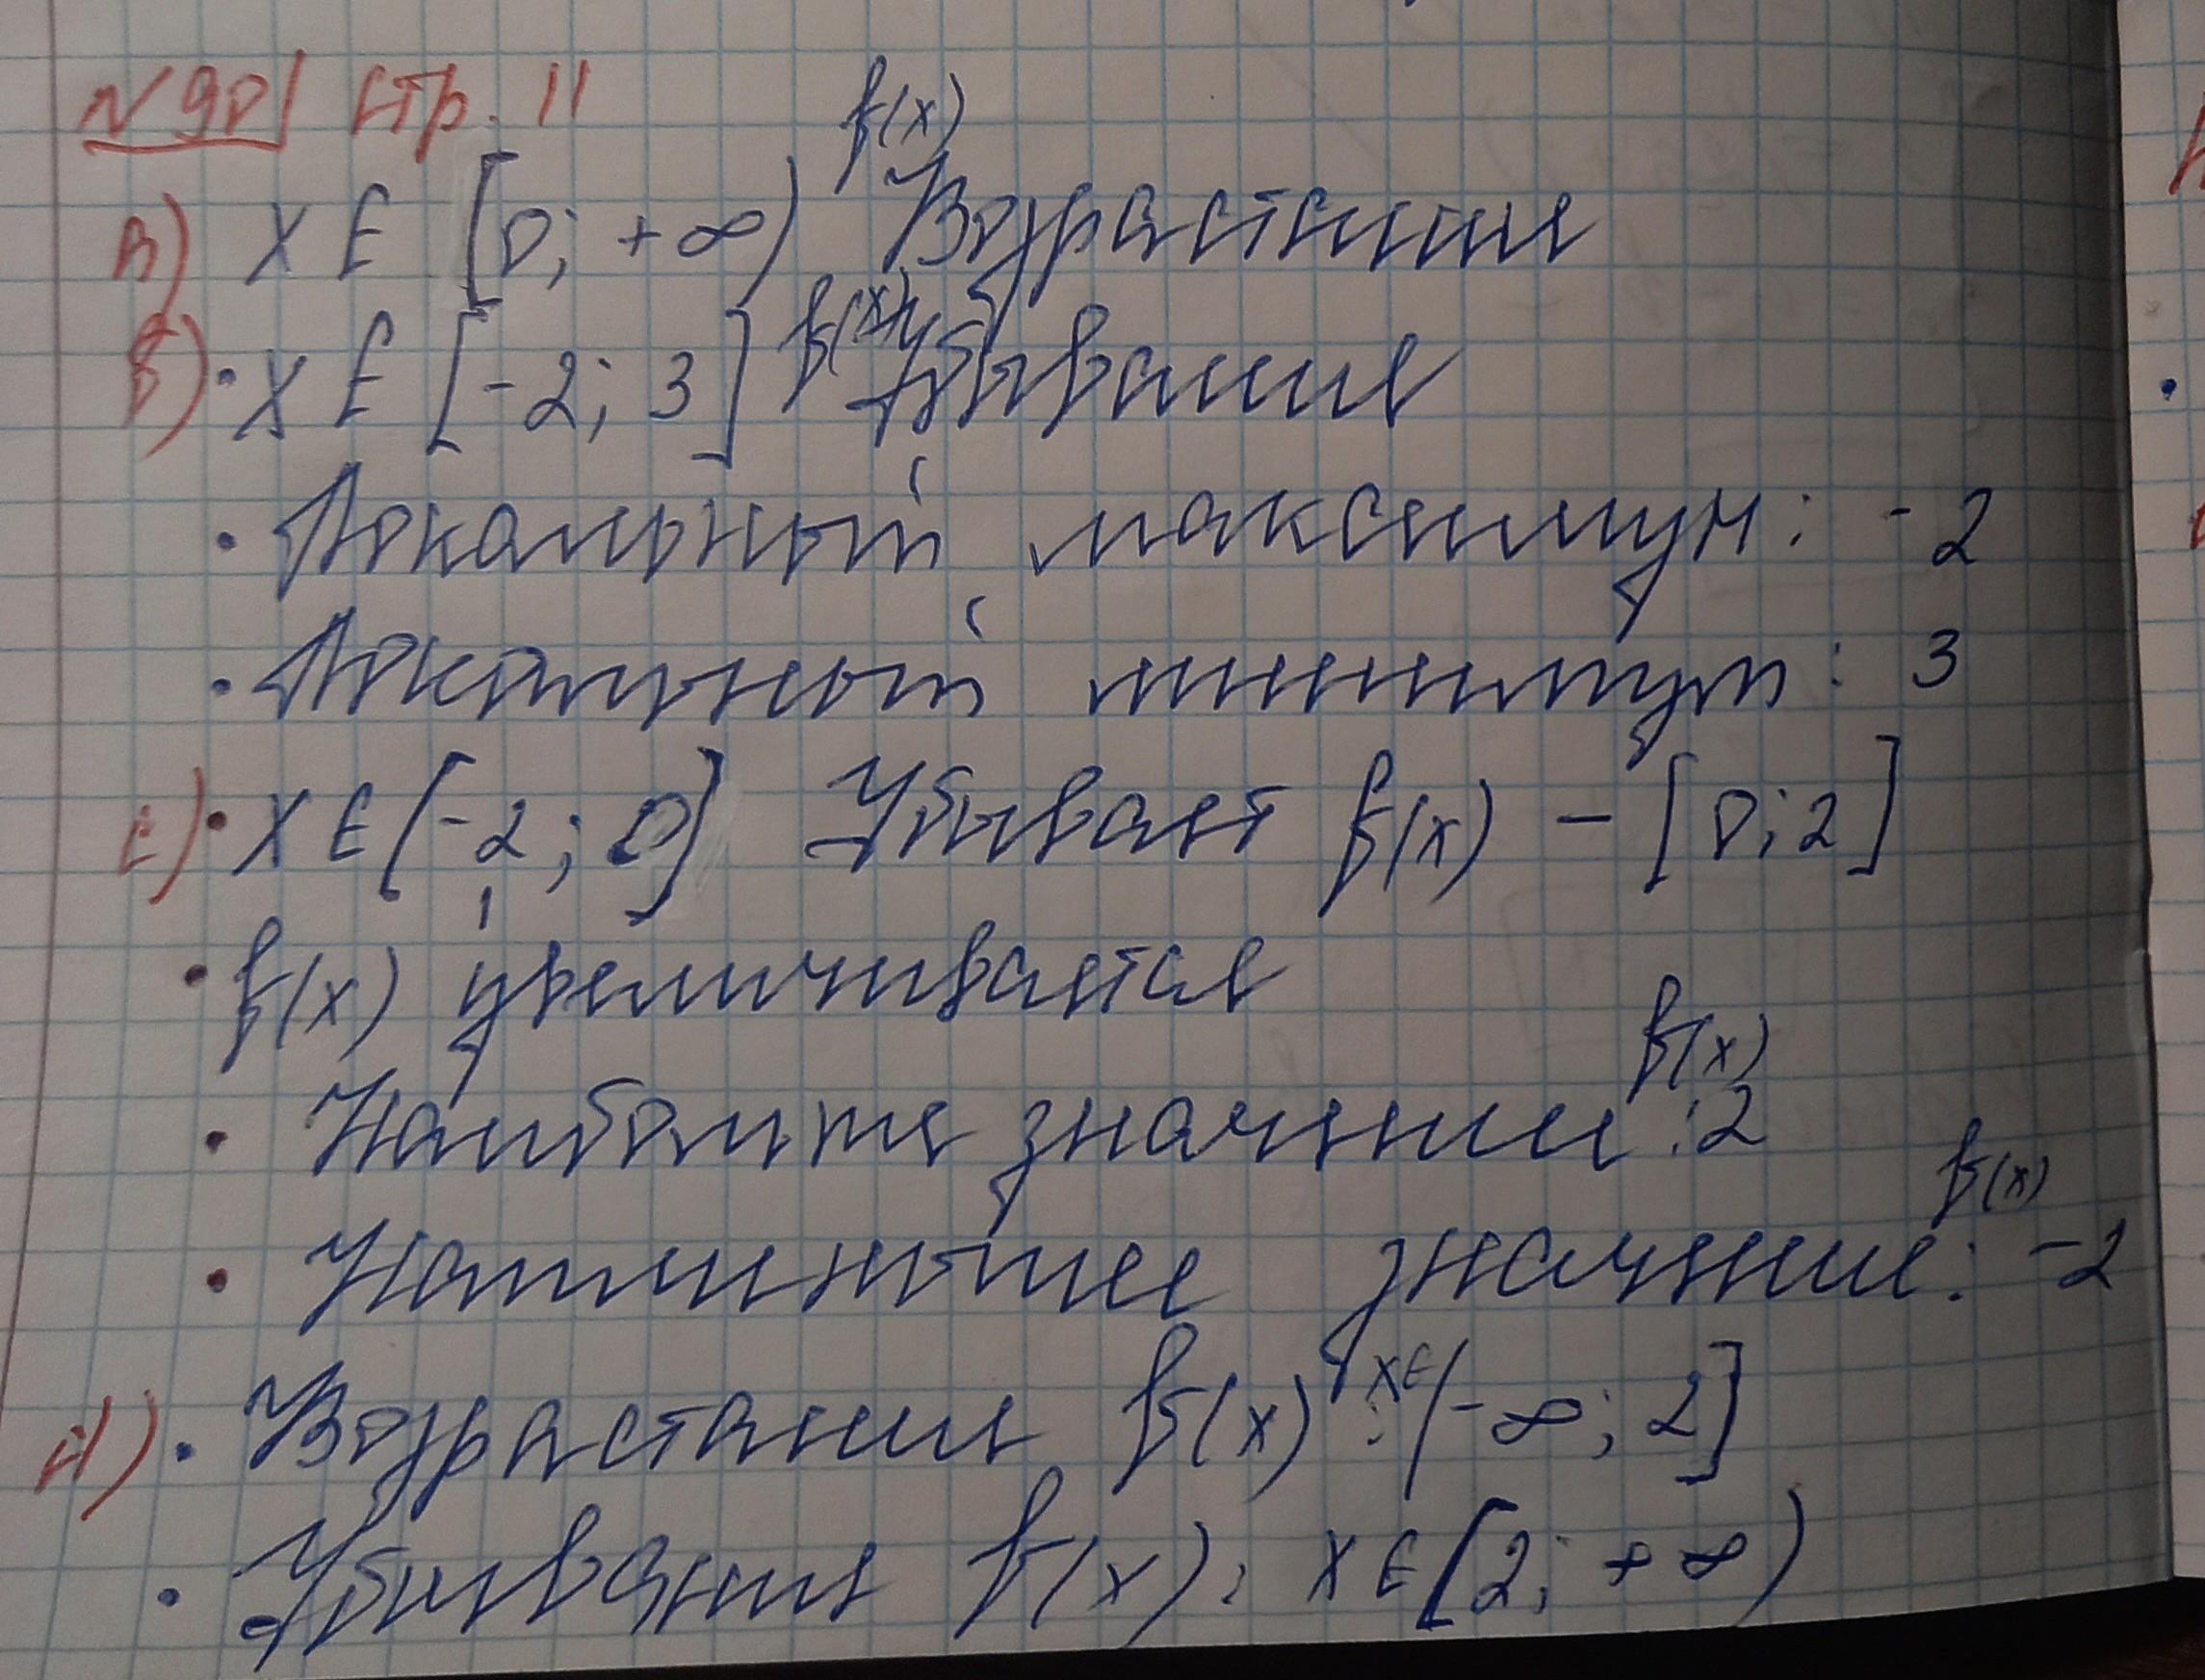 N 901 стр. 11
a) x ∈ [0; +∞) f(x) Возрастание
b) • x ∈ [-2; 3] f(x) Убывание
• Локальный максимум: -2
• Локальный минимум: 3
c) • x ∈ [-2; 0] Убывает f(x) - [0; 2]
• f(x) увеличивается
• Наибольшее значение f(x): 2
• Наименьшее значение f(x): -2
d) • Возрастание f(x): x ∈ (-∞; 2]
• Убывание f(x): x ∈ [2; +∞)